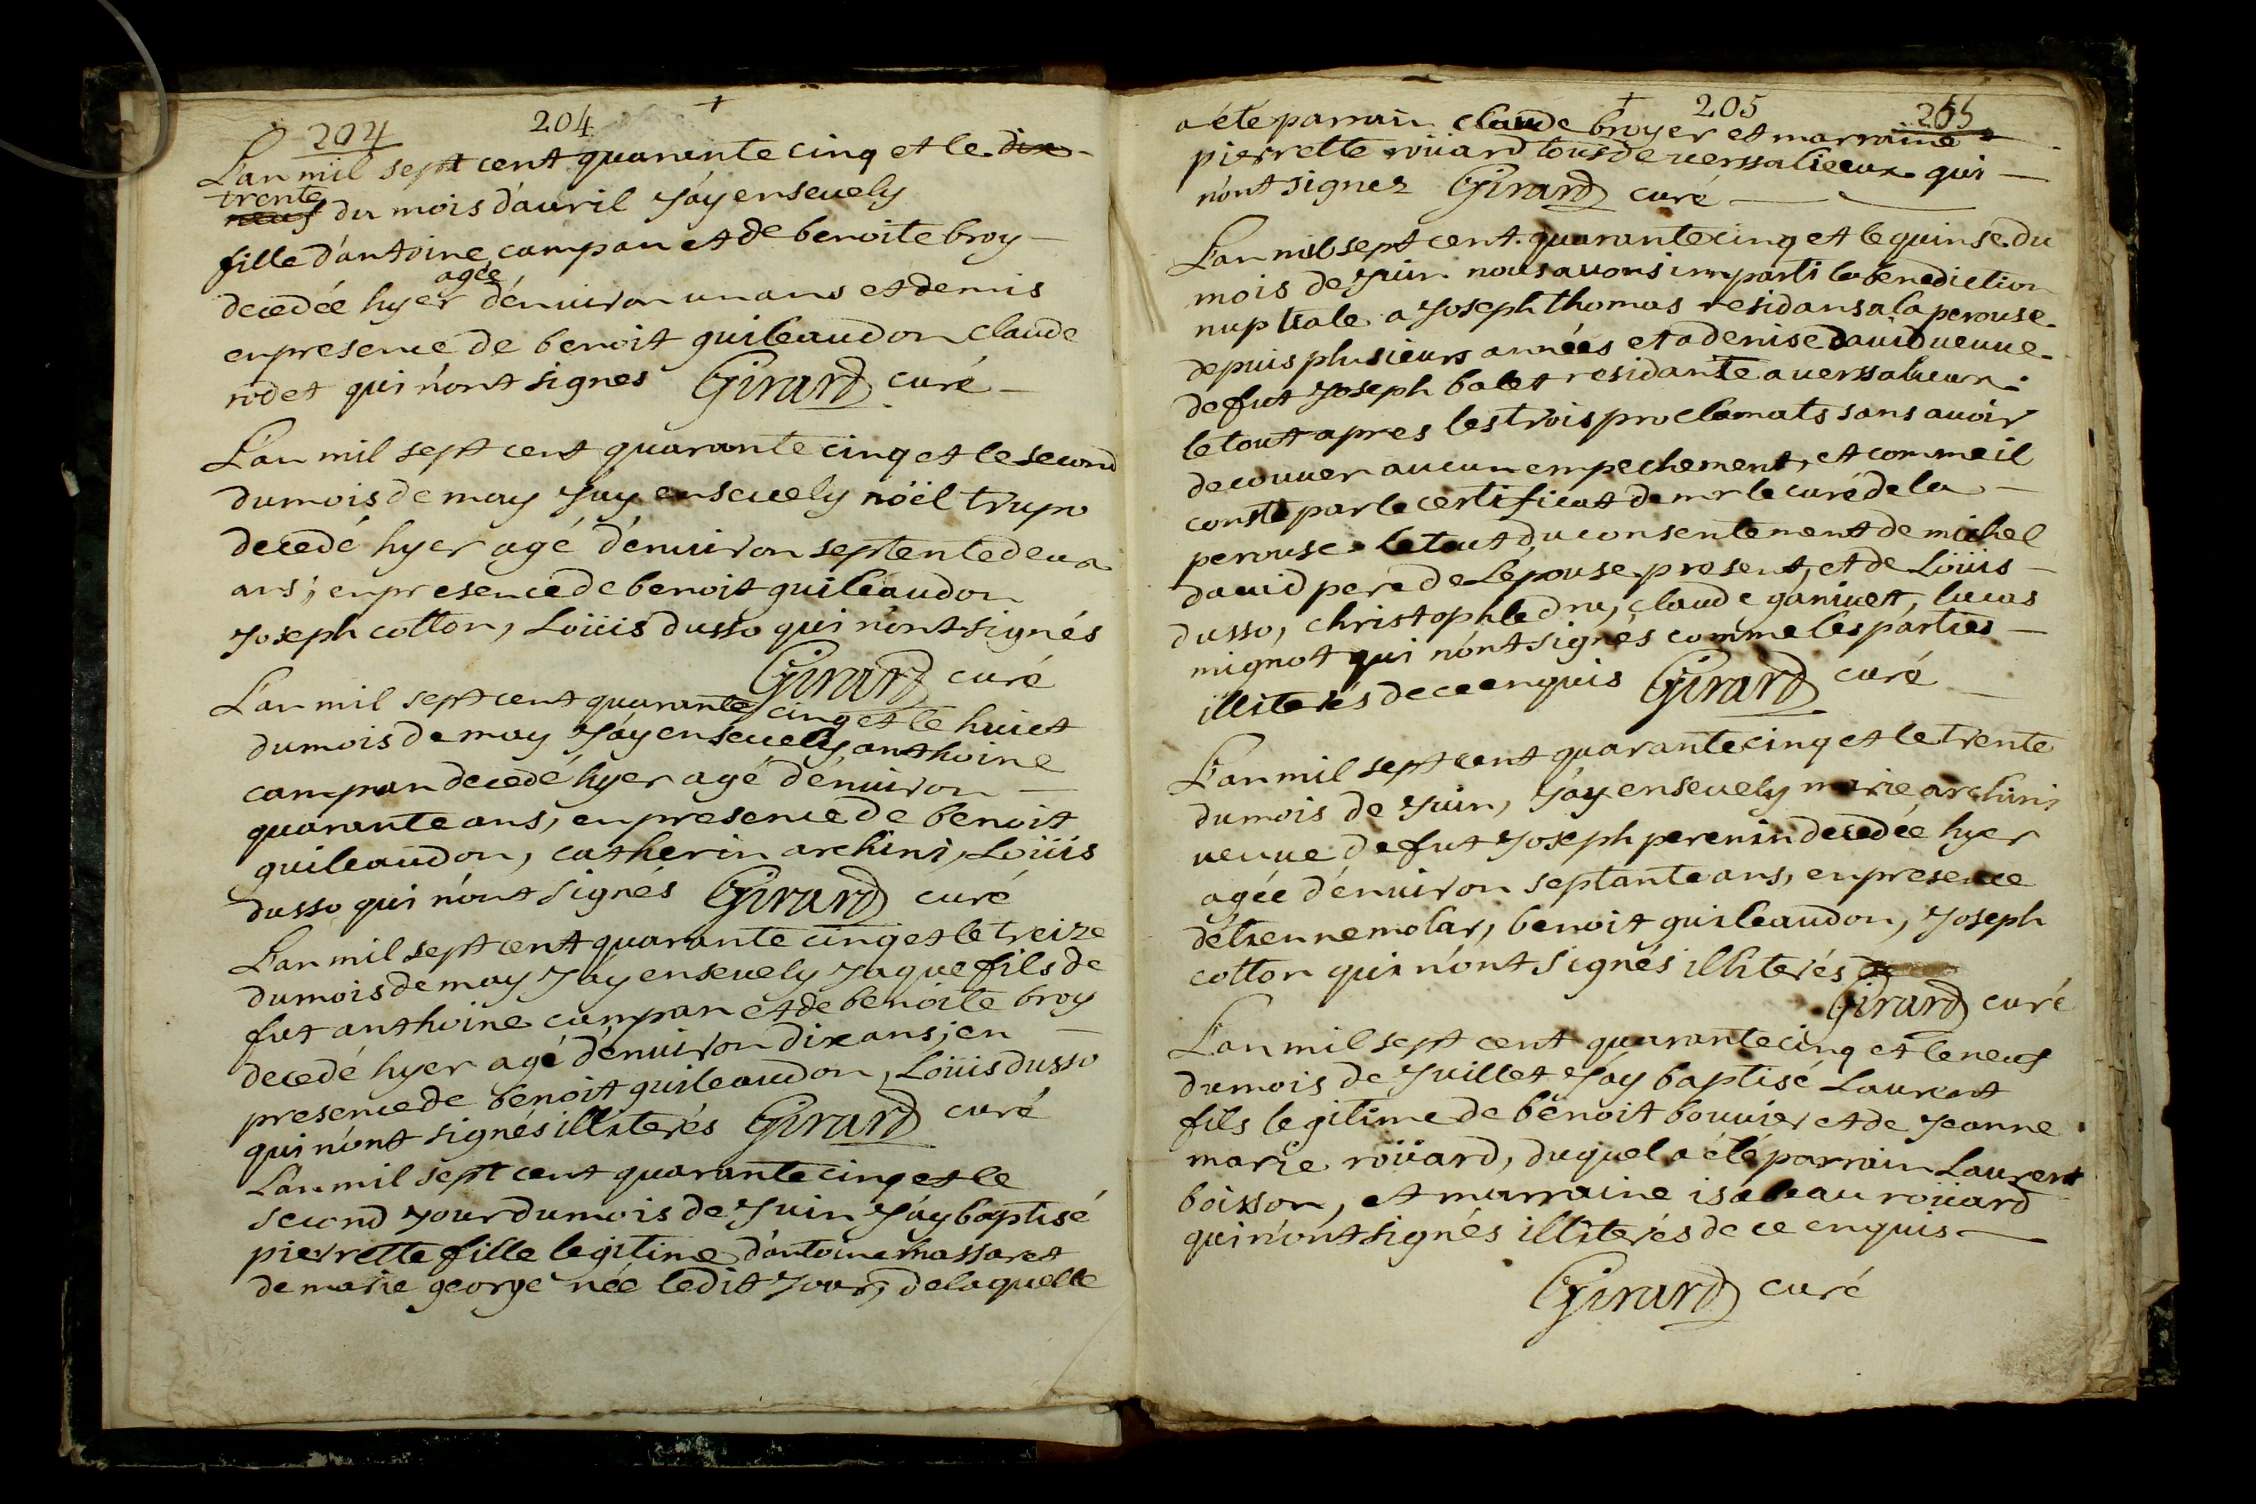 204
204
+
L'an mil sept cent quarante cinq et le dix
trente
neuf du mois d'auril J'ay enseuely
fille d'antoine campan et de benoite broy
agée
decedée hyer d'enuiron un ans et demis
en presence de benoit guileaudon claude
rodet qui n'ont signes Girard curé
L'an mil sept cent quarante cinq et le second
du mois de may J'ay enseuely noël trupo
decedé hyer agé d'enuiron septente deux
ans; en presence de benoit guileaudon
Joseph cotton, Loüis dusso qui n'ont signés
Girard curé
L'an mil sept cent quarante cinq et le huict
du mois de may J'ay enseuely anthoine
campan decedé hyer agé d'enuiron
quarante ans, en presence de benoit
guileaudon, catherin archini, Loüis
dusso qui n'ont signés Girard curé
L'an mil sept cent quarante cinq et le treize
du mois de may J'ay enseuely Jaque fils de
fut anthoine campan et de benoite broy
decedé hyer agé d'enuiron dix ans; en
presence de benoit guileaudon, Loüis dusso
qui n'ont signés illiterés Girard curé
L'an mil sept cent quarante cinq et le
second Jour du mois de Juin J'ay baptisé
pierrette fille legitime d'antoine massaret
de marie george née ledit Jour, de laquelle
+ 205 205
a été parrain claude broyer et marraine
pierrette roüard tous de uerssalieux qui
n'ont signez Girard curé
L'an mil sept cent quarante cinq et le quinse du
mois de Juin nous auons imparti la benediction
nuptiale a Joseph thomas residans a la perouse
depuis plusieurs années et a denise dauid ueuue
de fut Joseph balet residante a uerssalieux
le tout apres les trois proclamats sans auoir
decouuer aucun empechement, et comme il
conste par le certificat de mr le curé de la
perouse le tout du consentement de michel
dauid pere de L'epouse present, et de Loüis
dusso, christophle dru, claude ganiuet, lucas
mignot qui n'ont signés comme les parties
illiterés de ce enquis Girard curé
L'an mil sept cent quarante cinq et le trente
du mois de Juin, J'ay enseuely marie archini
ueuue de fut Joseph perenin decedée hyer
agée d'enuiron septante ans, en presence
d'etienne molar, benoit guileaudon, Joseph
cotton qui n'ont signés illiterés
Girard curé
L'an mil sept cent quarante cinq et le neuf
du mois de Juillet J'ay baptisé Laurent
fils legitime de benoit bouuier et de Jeanne
marie roüard, duquel a été parrain Laurent
boisson, et marraine isabeau roüard
qui n'ont signés illiterés de ce enquis
Girard curé